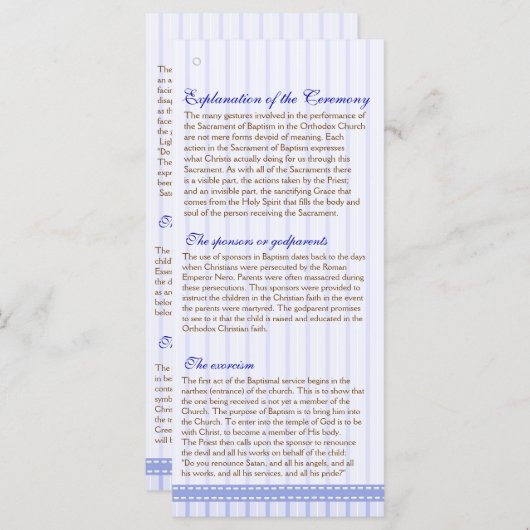 Explanation of the Ceremony
The many gestures involved in the performance of
the Sacrament of Baptism in the Orthodox Church
are not mere forms devoid of meaning. Each
action in the Sacrament of Baptism expresses
what Christis actually doing for us through this
Sacrament. As with all of the Sacraments there
is a visible part, the actions taken by the Priest;
and an invisible part, the sanctifying Grace that
comes from the Holy Spirit that fills the body and
soul of the person receiving the Sacrament.
The sponsors or godparents
The use of sponsors in Baptism dates back to the days
when Christians were persecuted by the Roman
Emperor Nero. Parents were often massacred during
these persecutions. Thus sponsors were provided to
instruct the children in the Christian faith in the event
the parents were martyred. The godparent promises
to see to it that the child is raised and educated in the
Orthodox Christian faith.
The exorcism
The first act of the Baptismal service begins in the
narthex (entrance) of the church. This is to show that
the one being received is not yet a member of the
Church. The purpose of Baptism is to bring him into
the Church. To enter into the temple of God is to be
with Christ, to become a member of His body.
The Priest then calls upon the sponsor to renounce
the devil and all his works on behalf of the child:
"Do you renounce Satan, and all his angels, and all
his works, and all his services, and all his pride?"
The
an a
facin
disap
as th
face
the g
Ligh
"Do
The
expr
been
Sata
The
child'
Esse
the d
as are
belo
belo
The
in be
conta
symb
Chris
the tr
Cree
will b